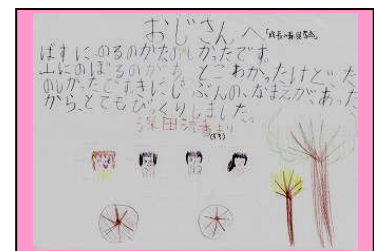 おじさんへ
ばすにのるのがたのしかったです。
山にのぼるのがちょとこわかったけどた
のしかったです。きにじぶんの、なまえが、あった
から、とてもびっくりしました。
深田 より